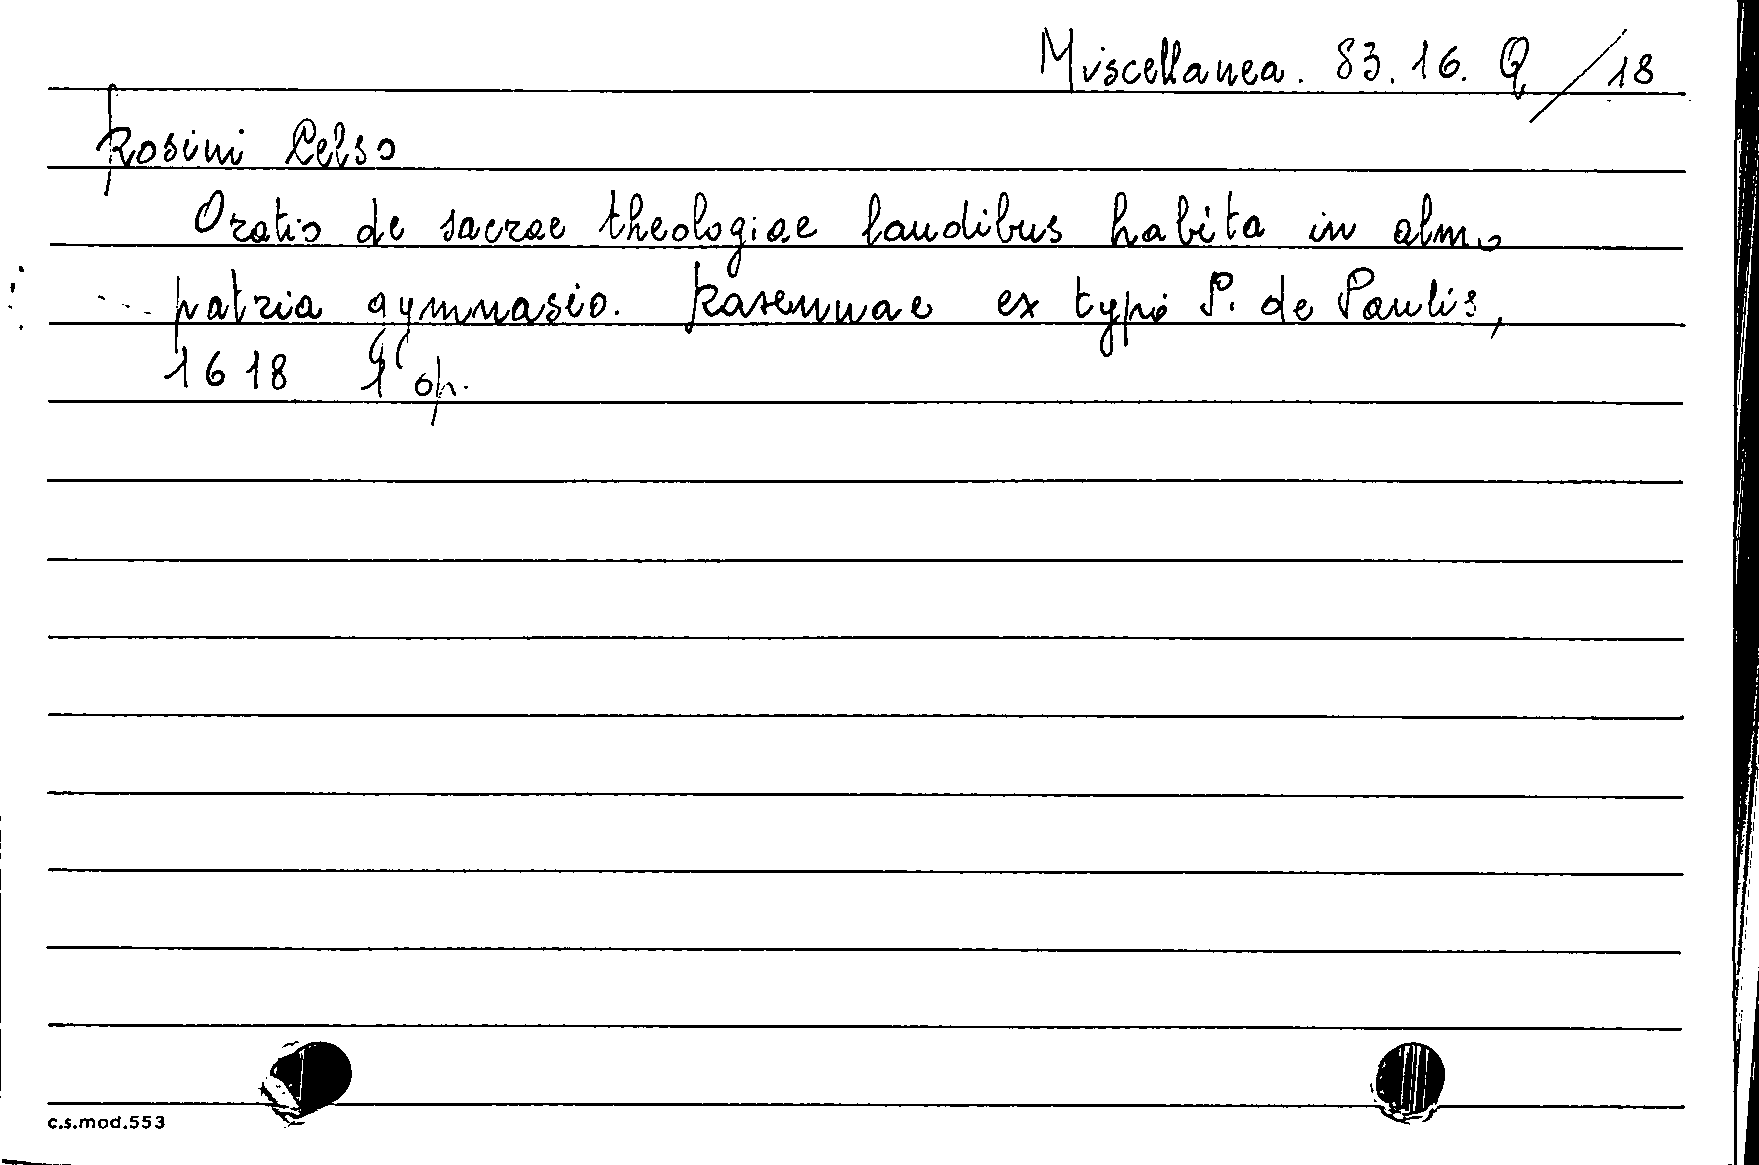 Miscellanea. 83. 16. Q / 18
Rosini Celso
Oratio de sacrae theologiae laudibus habita in almo
patria gymnasio. Ravennae ex typis P. de Paulis,
1618 1° op.
c.s.mod.553